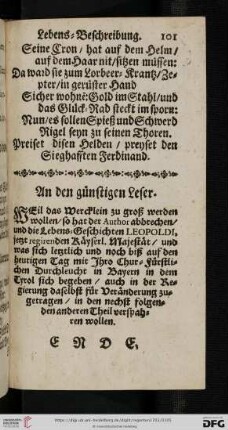 Lebens-Beschreibung. 101
Seine Cron / hat auf dem Helm /
auf dem Haar nit / sitzen müssen:
Da ward sie zum Lorbeer-Krantz / Ze-
pter / in gerüster Hand
Sicher wohnt Gold im Stahl / und
das Glück-Rad steckt im sporn:
Nun / es sollen Spieß und Schwerd
Rigel seyn zu seinen Thoren.
Preiset disen Helden / preyset den
Sieghafften Ferdinand.
An den günstigen Leser.
WEil das Wercklein zu groß werden
wollen / so hat der Author abbrechen /
und die Lebens-Geschichten LEOPOLDI,
jetzt regirenden Käyserl. Majestät / und
was sich letztlich und noch biß auf den
heutigen Tag mit Ihro Chur-Fürstli-
chen Durchleucht in Bayern in dem
Tyrol sich begeben / auch in der Re-
gierung daselbst für Veränderung zu-
getragen / in den nechst folgen-
den anderen Theil verspah-
ren wollen.
E N D E.
DFG